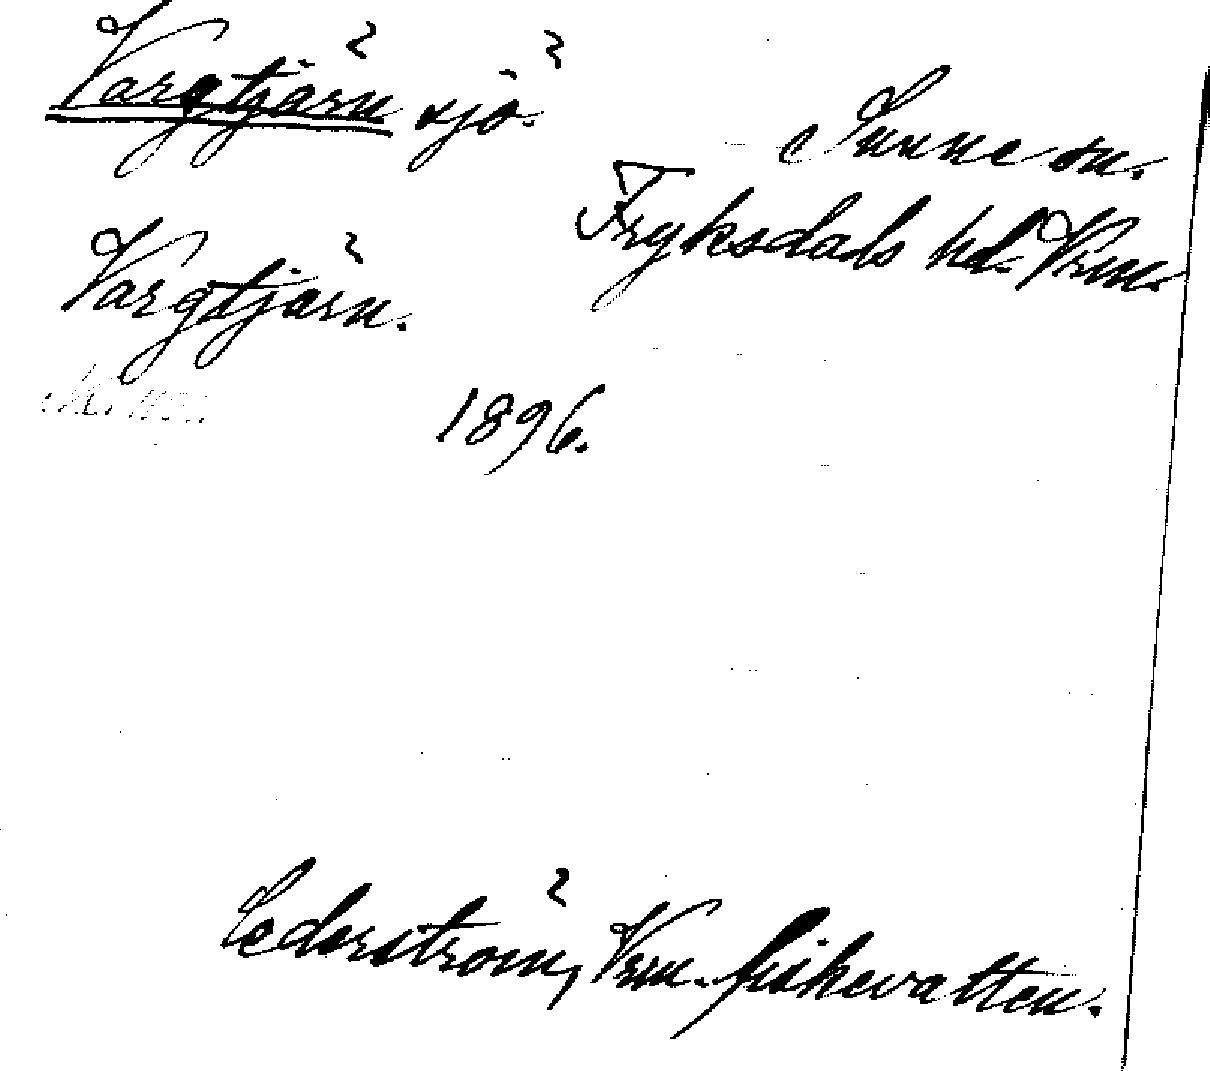 Vargtjärn sjö.
Sunne sn.
Fryksdals hd. Vrm.
Vargtjärn.
1896.
Cederström, Vrm. fiskevatten.